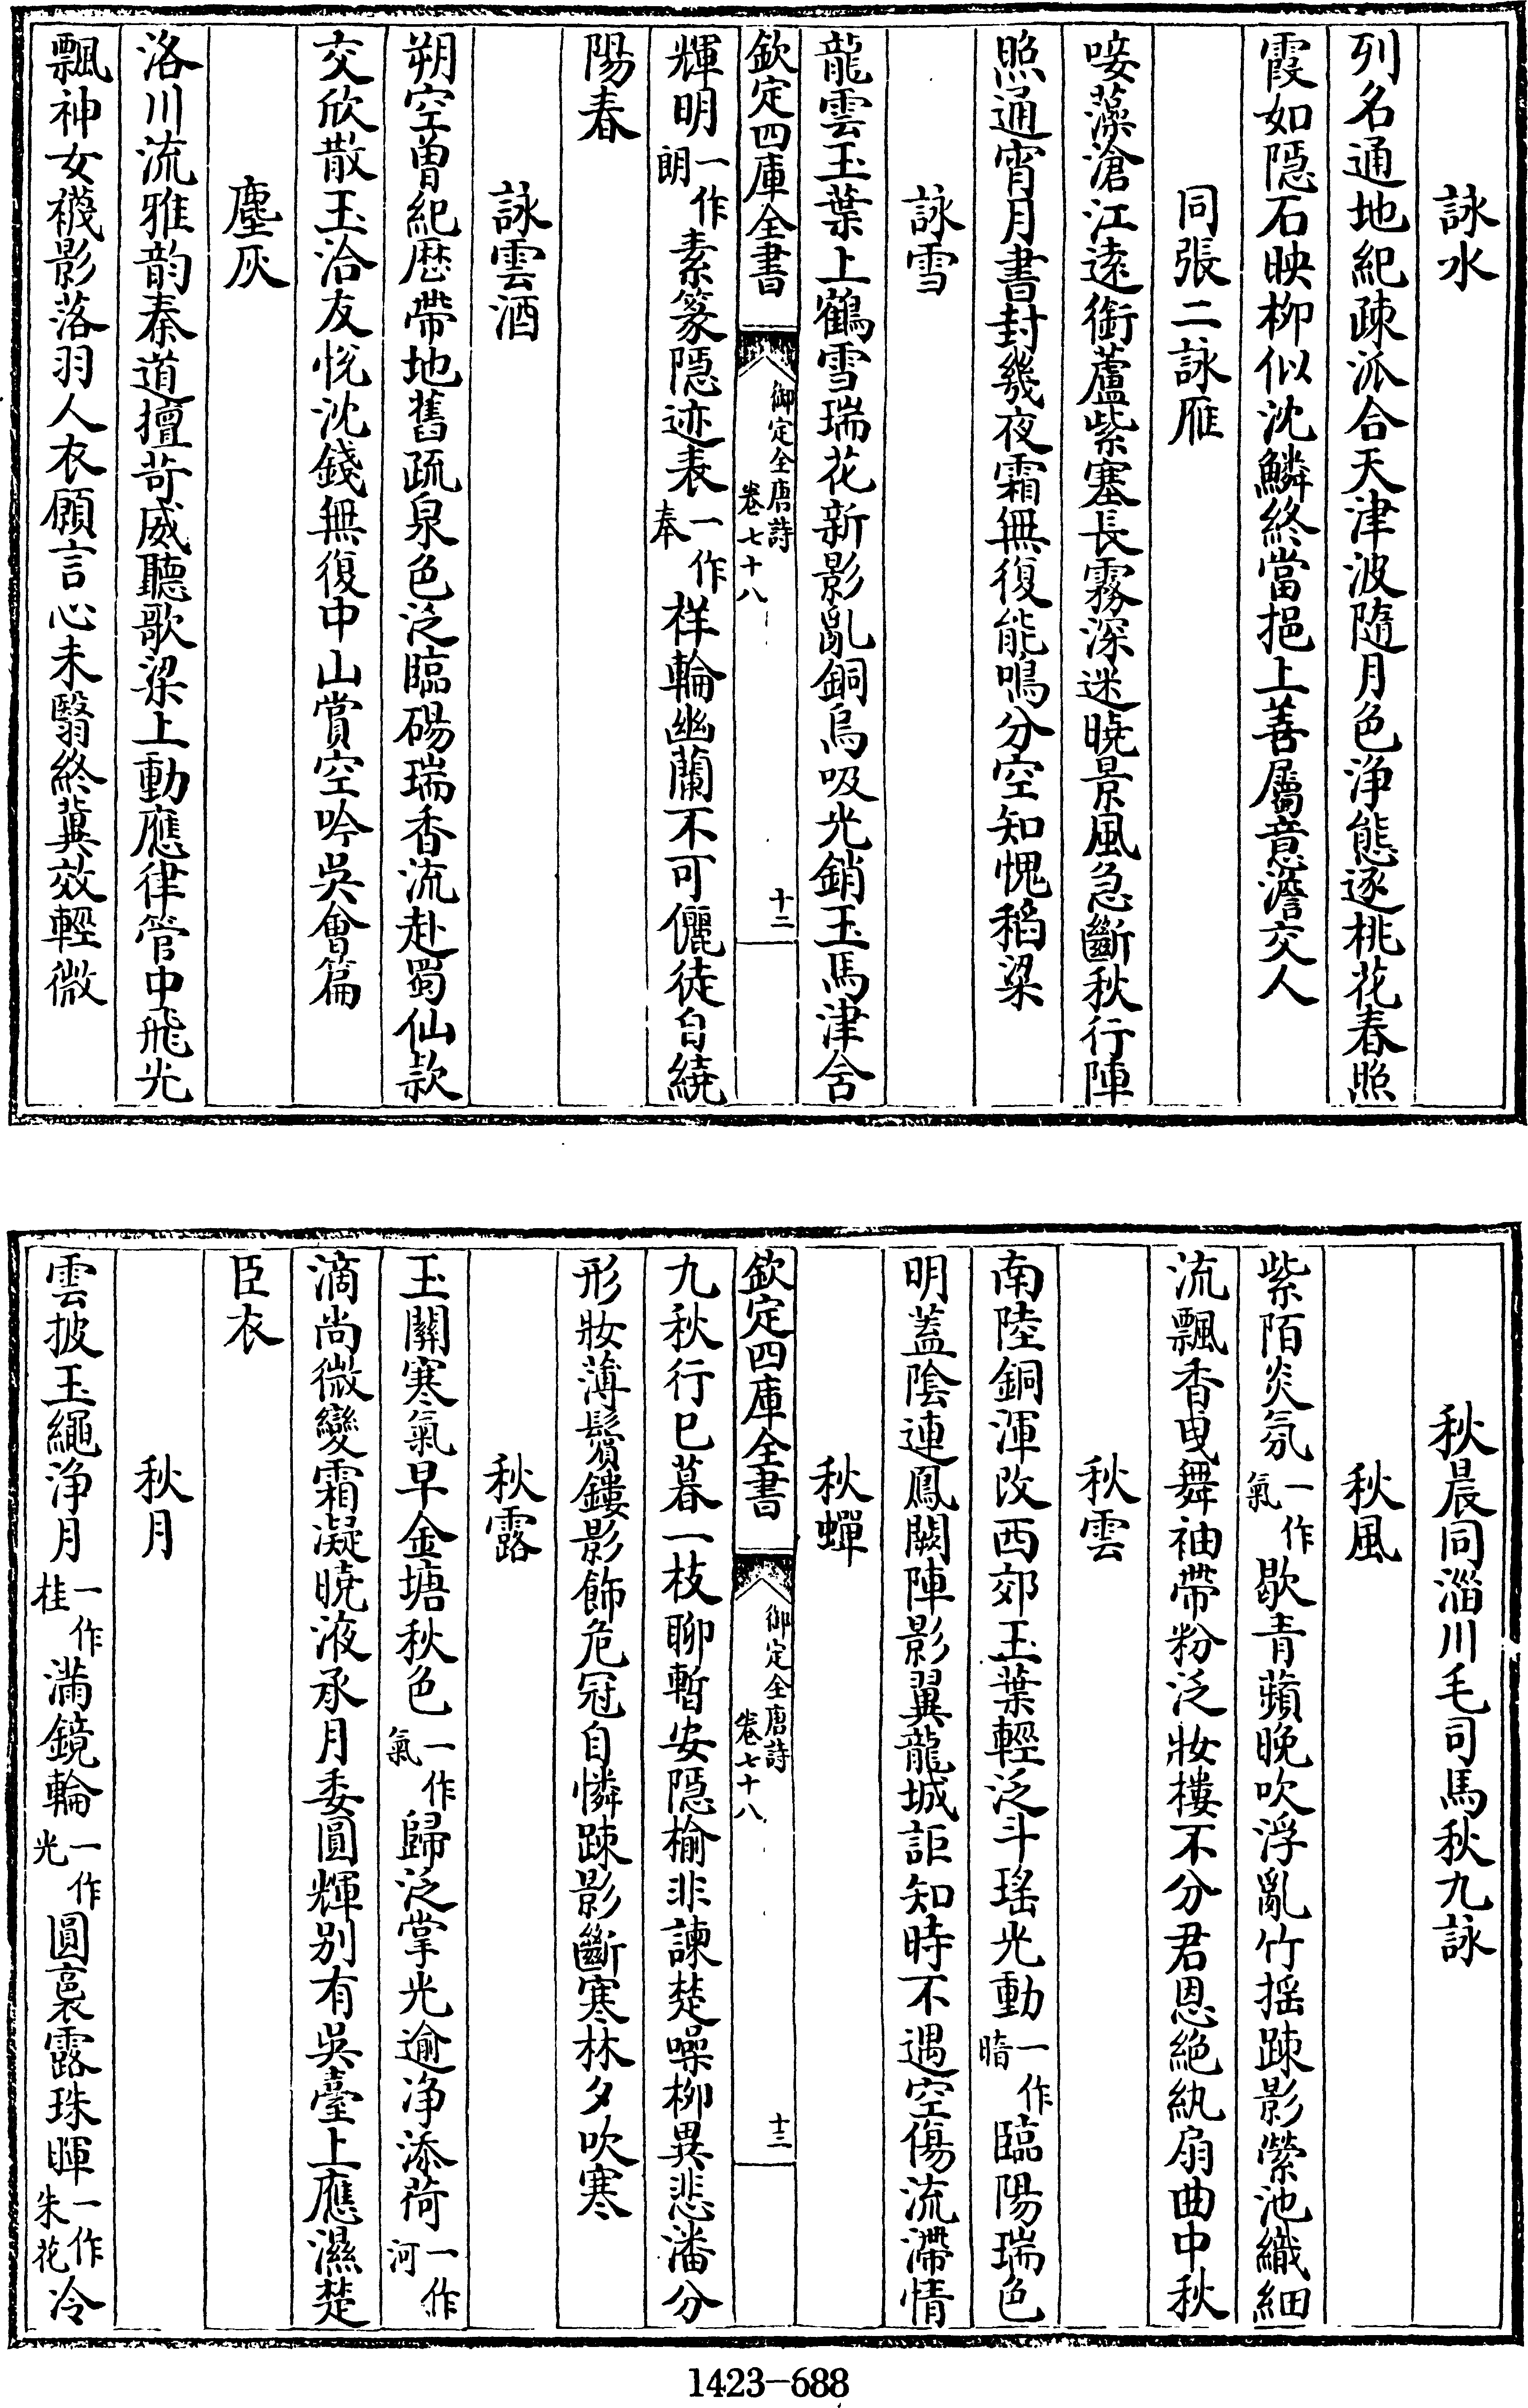 詠水
列名通地紀疎派合天津波隨月色浄態逐桃花春照
霞如隱石映柳似沈鱗終當挹上善屬意澹交人
同張二詠雁
唼藻滄江逺銜蘆紫塞長霧深迷曉景風急斷秋行陣
照通宵月書封幾夜霜無復能鳴分空知愧稻梁
詠雪
龍雲玉葉上鶴雪瑞花新影亂銅烏吸光銷玉馬津含
欽定四庫全書
御定全唐詩
卷七十八
十二
輝明一作朗素篆隱迹表一作奉祥輪幽蘭不可儷徒自繞
陽春
詠雲酒
朔空曽紀歴帶地舊疏泉色泛臨碭瑞香流赴蜀仙款
交欣散玉洽友恱沈錢無復中山賞空吟吳會篇
塵灰
洛川流雅韵秦道擅苛威聽歌梁上動應律管中飛光
飄神女襪影落羽人衣願言心未翳終冀效輕微
秋晨同淄川毛司馬秋九詠
秋風
紫陌炎氛一作氣歇青蘋晚吹浮亂竹揺疎影縈池織細
流飄香曳舞袖帶粉泛妝樓不分君恩絶紈扇曲中秋
秋雲
南陸銅渾改西郊玉葉輕泛斗瑤光動一作暗臨陽瑞色
明蓋陰連鳳闕陣影翼龍城詎知時不遇空傷流滯情
秋蟬
欽定四庫全書
御定全唐詩
卷七十八
十三
九秋行已暮一枝聊暫安隱榆非諫楚噪柳異悲潘分
形妝薄鬢鏤影飾危冠自憐疎影斷寒林夕吹寒
秋露
玉關寒氣早金塘秋色一作氣歸泛掌光逾浄添荷一作河
滴尚微變霜凝曉液承月委圓輝别有吳臺上應濕楚
臣衣
秋月
雲披玉繩浄月一作桂滿鏡輪一作光圓裛露珠暉一作朱花冷
1423-688